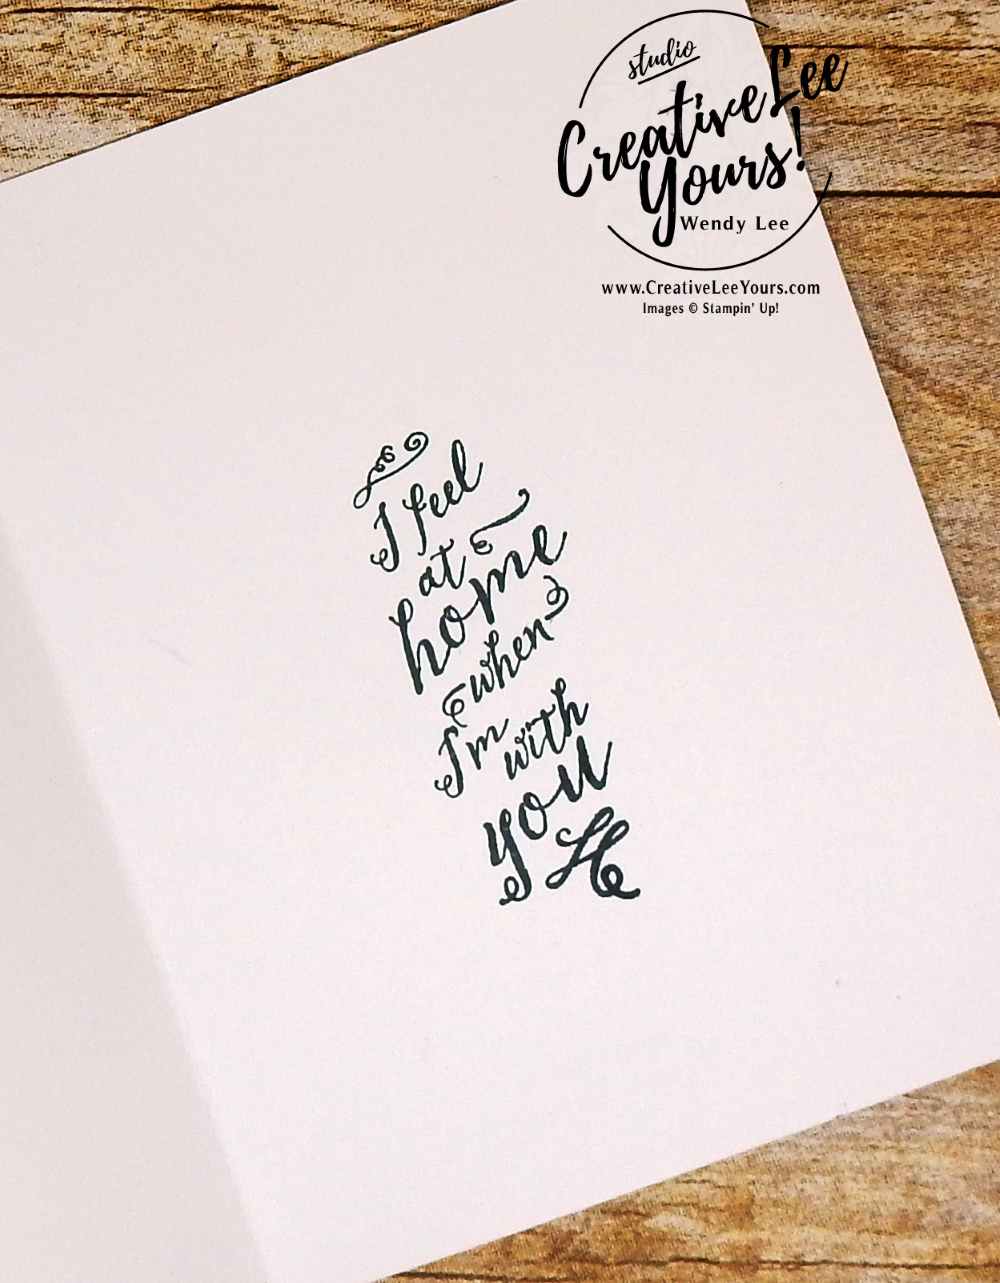 studio
CreativeLee
Yours!
Wendy Lee
www.CreativeLeeYours.com
Images © Stampin' Up!
I feel
at
home
when
I'm with
you